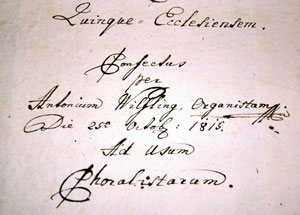 Quinque-Ecclesiensem.
Confectus
per
Antonium Wilfling, Organistam
Die 25e Octob: 1815.
Ad Usum
Choralistarum.